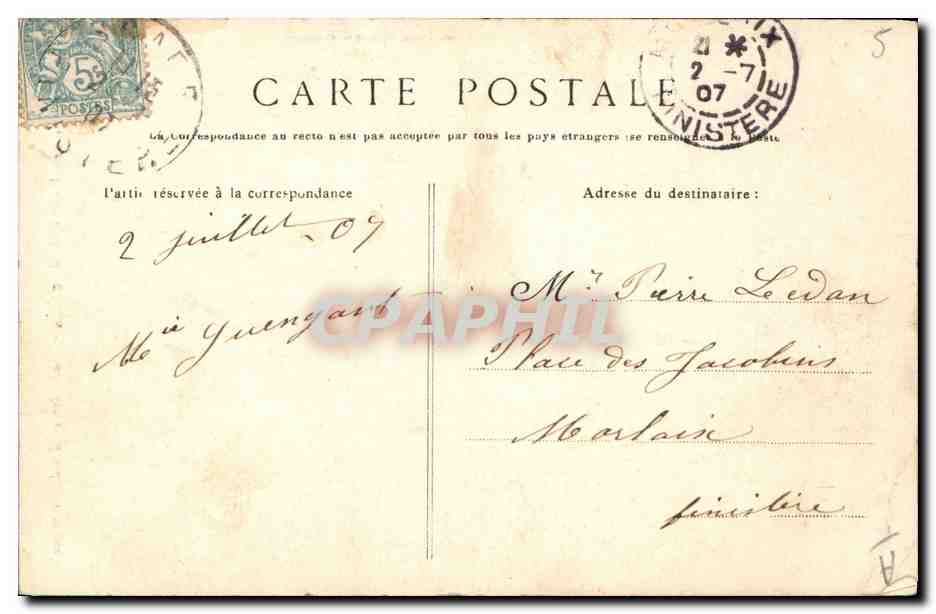 5
POSTES
21 *
2 -7
07
FINISTERE
5
CARTE POSTALE
La Correspondance au recto n'est pas acceptée par tous les pays étrangers (se renseigner à la Poste
Partie réservée à la correspondance
Adresse du destinataire :
2 juillet 07
Mie Guengant
Mr Pierre Ledan
Place des Jacobins
Morlaix
finistère
CPAPHIL
A